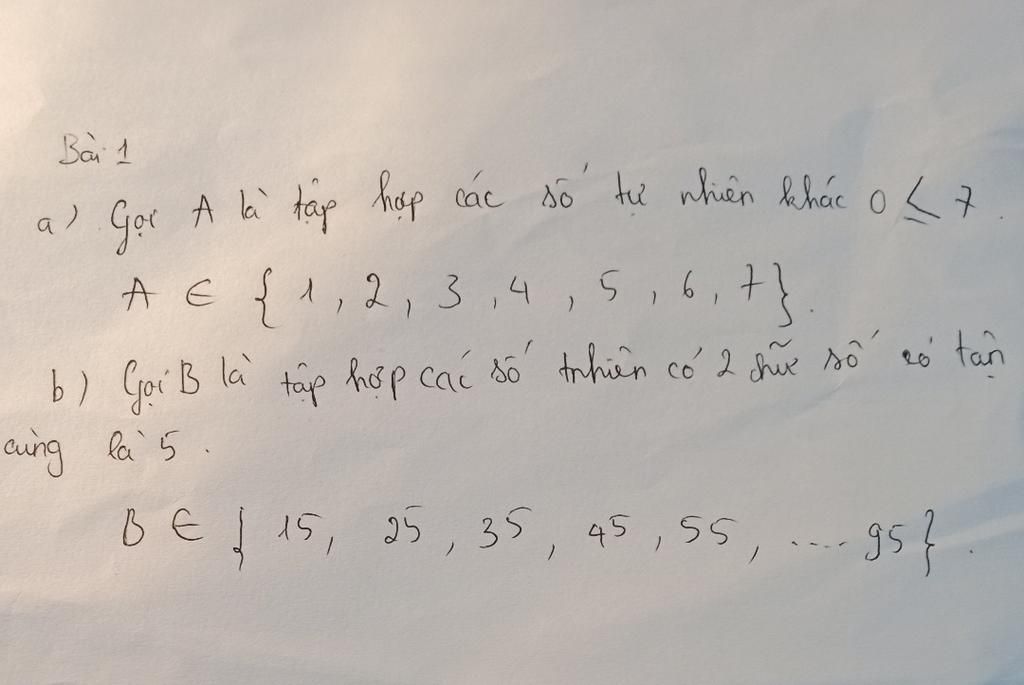 Bài 1
a) Gọi A là tập hợp các số tự nhiên khác 0 ≤ 7.
A ∈ { 1, 2, 3, 4, 5, 6, 7}.
b) Gọi B là tập hợp các số tnhiên có 2 chữ số có tận
cùng là 5.
B ∈ { 15, 25, 35, 45, 55, .... 95}.